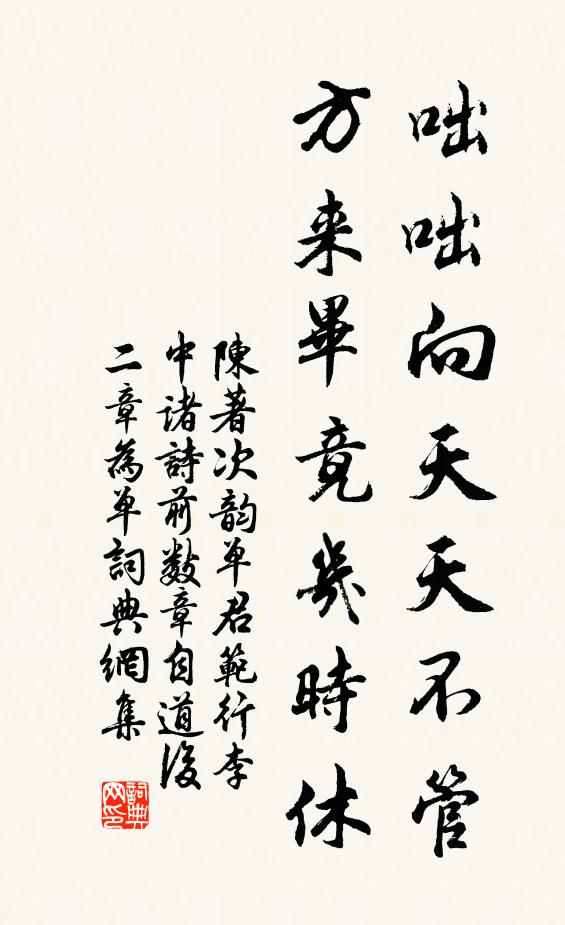 咄咄向天天不管
方来畢竟幾時休
陳著次韵单君範行李
中诸詩前数章自道後
二章為单詞典網集
詞典
网印